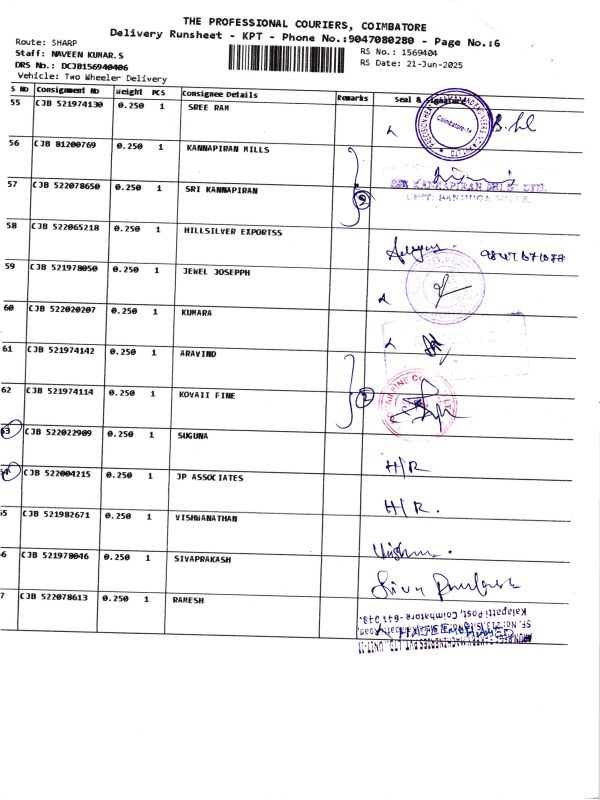 THE PROFESSIONAL COURIERS, COIMBATORE
Delivery Runsheet - KPT - Phone No.:9047080280 - Page No.:6
Route: SHARP
Staff: NAVEEN KUMAR.S
DRS No.: DCJB156940406
Vehicle: Two Wheeler Delivery
RS No.: 1569404
RS Date: 21-Jun-2025
S No Consignment No Weight PCS Consignee Details Remarks Seal & Signature
55 CJB 521974130 0.250 1 SREE RAM
Coimbatore-14
56 CJB 81200769 0.250 1 KANNAPIRAN MILLS
57 CJB 522078650 0.250 1 SRI KANNAPIRAN
SRI KANNAPIRAN MILLS LTD.
58 CJB 522065218 0.250 1 HILLSILVER EXPORTSS
59 CJB 521978050 0.250 1 JEWEL JOSEPPH
60 CJB 522020207 0.250 1 KUMARA
61 CJB 521974142 0.250 1 ARAVIND
62 CJB 521974114 0.250 1 KOVAII FINE
2
63 CJB 522022909 0.250 1 SUGUNA H/R
64 CJB 522004215 0.250 1 JP ASSOCIATES H/R.
65 CJB 521982671 0.250 1 VISHWANATHAN
66 CJB 521978046 0.250 1 SIVAPRAKASH
67 CJB 522078613 0.250 1 RAMESH
Kalapatti Post, Coimbatore - 641 048.